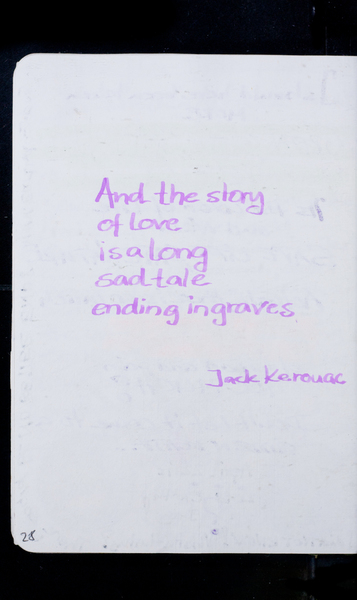 And the story
of love
is a long
sad tale
ending in graves
Jack Kerouac
28